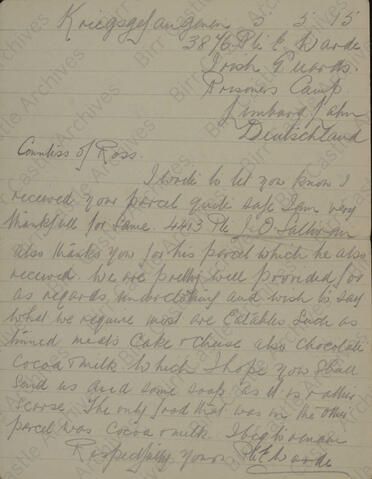 Kriegsgefangenen 5 5 15
3876 Pte E Warde
Irish Guards.
Prisoners Camp
Limburg Lahn
Deutschland
Countess of Ross.
I write to let you know I
received your parcel quite safe I am very
thankfull for same. 4413 Pte J. O
also thanks you for his parcel which he also
received. We are pretty well provided for
as regards underclothing and wish to say
what we require most are Eatables Such as
tinned meats Cake & Cheese also Chocolate
Cocoa & milk Which I hope you Shall
Send us and some soap as it is rather
scarse. The only food that was in the other
parcel was Cocoa & milk. I beg to remain
Respectfully yours Warde
Birr Castle Archives